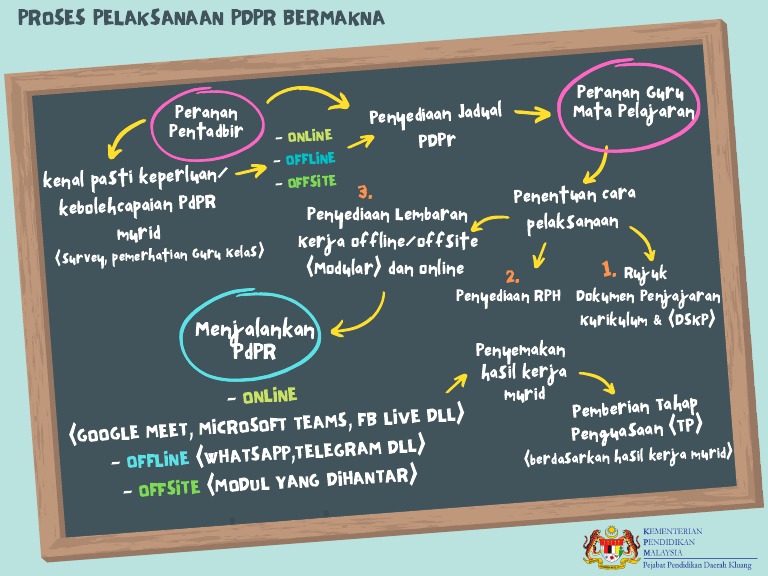 PROSES PELAKSANAAN PDPR BERMAKNA
Peranan
Pentadbir
kenal pasti keperluan/
kebolehcapaian PdPR
murid
(survey, pemerhatian Guru Kelas)
- ONLINE
- OFFLINE
- OFFSITE
Penyediaan Jadual
PDPr
Peranan Guru
Mata Pelajaran
Penentuan cara
pelaksanaan
1. Rujuk
Dokumen Penjajaran
Kurikulum & (DSKP)
2.
Penyediaan RPH
3.
Penyediaan Lembaran
Kerja offline/offsite
(Modular) dan online
Menjalankan
PdPR
- ONLINE
(GOOGLE MEET, MICROSOFT TEAMS, FB LIVE DLL)
- OFFLINE (WHATSAPP,TELEGRAM DLL)
- OFFSITE (MODUL YANG DIHANTAR)
Penyemakan
hasil kerja
murid
Pemberian Tahap
Penguasaan (TP)
(berdasarkan hasil kerja murid)
KEMENTERIAN
PENDIDIKAN
MALAYSIA
Pejabat Pendidikan Daerah Kluang